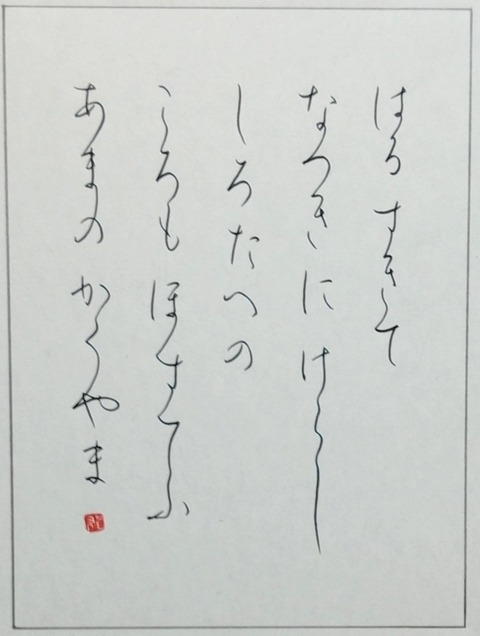 はるすきて
なつきにけらし
しろたへの
ころもほすてふ
あまのかくやま